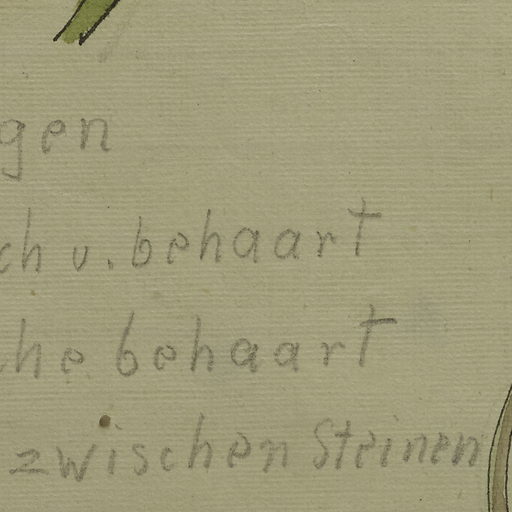 gen
ch u. behaart
he behaart
zwischen Steinen